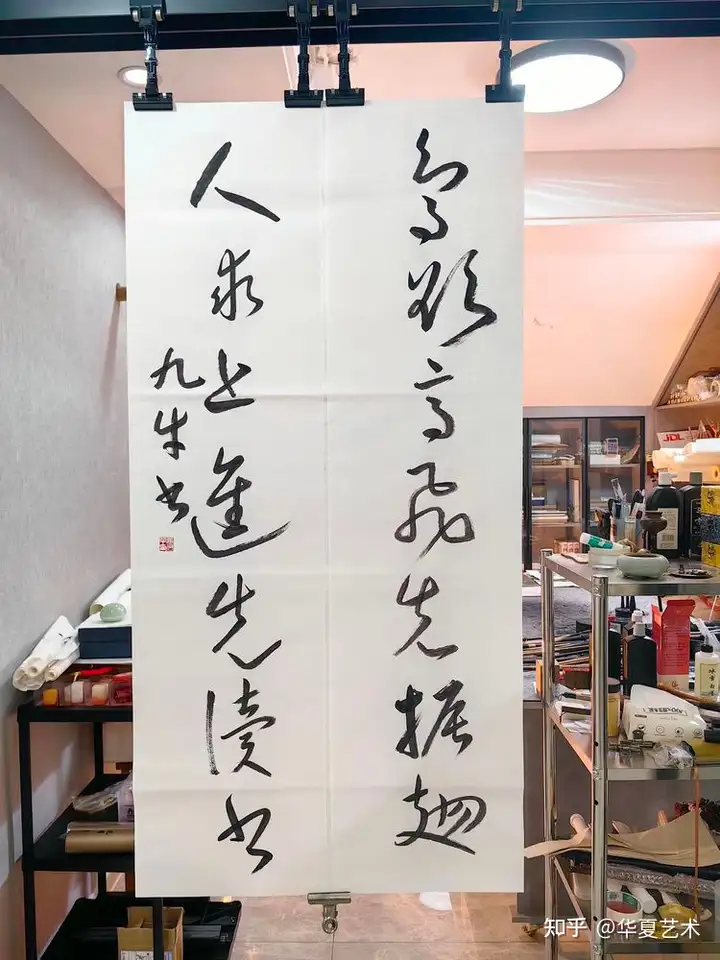 鸟欲高飞先振翅
人求上進先读书
九牛书
JDL
知乎 @华夏艺术